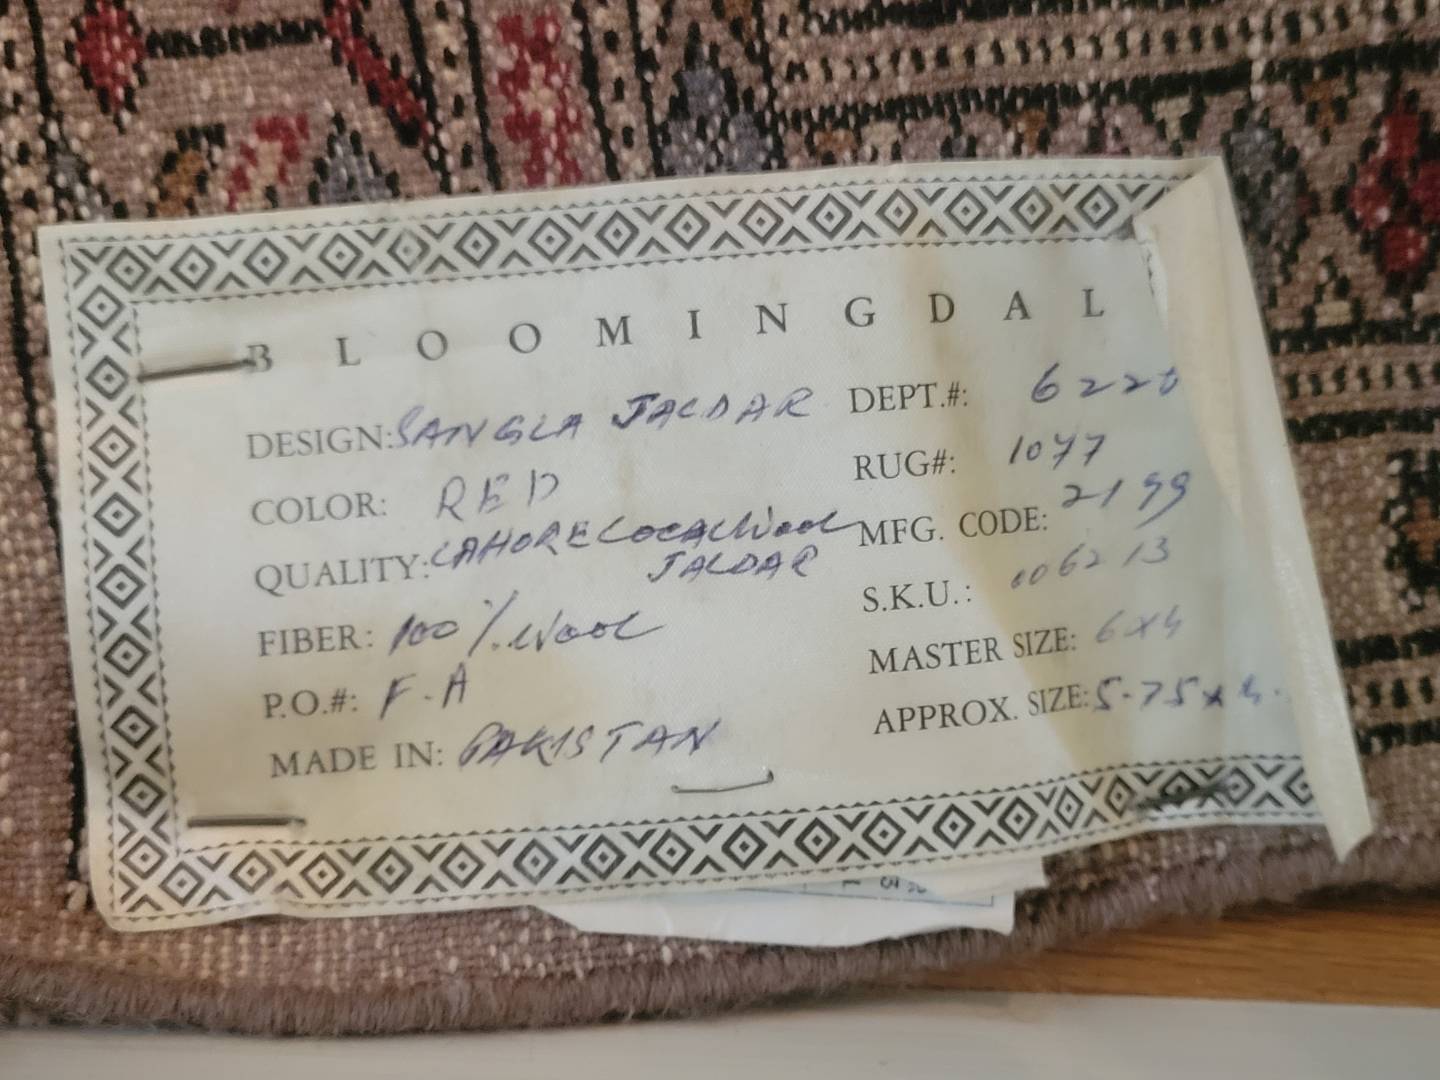 BLOOMINGDAL
DESIGN: SANGLA JALDAR
COLOR: RED
QUALITY: LAHORE LOCAL WOOL
JALDAR
FIBER: 100% WOOL
P.O.#: F.A
MADE IN: PAKISTAN
DEPT.#: 6220
RUG#: 1077
MFG. CODE: 2199
S.K.U.: 006213
MASTER SIZE: 6x4
APPROX. SIZE: 5-75x4.